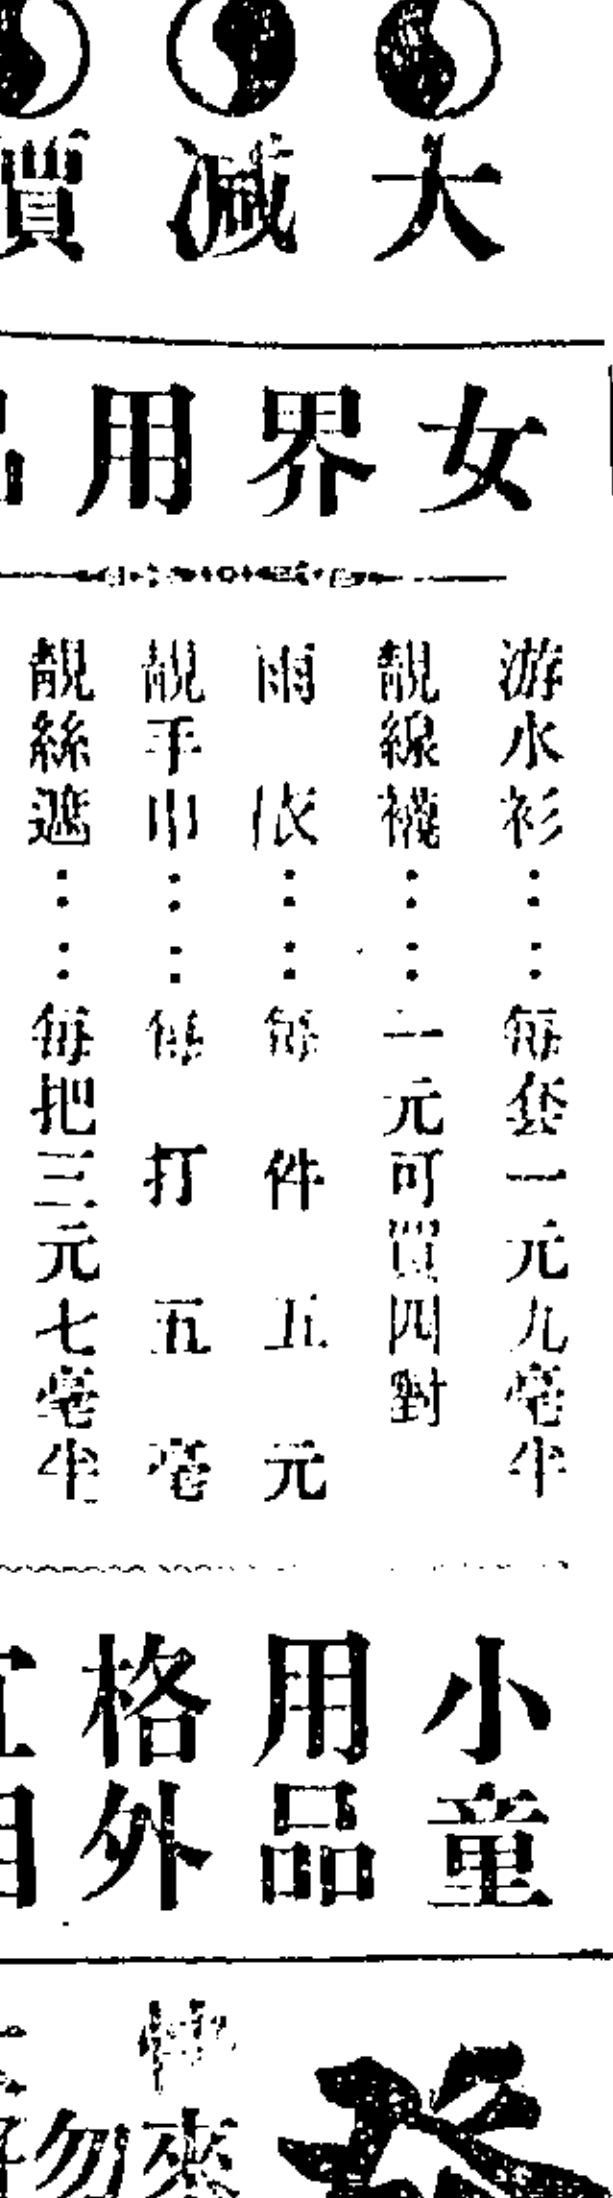 大減價
女界用品
游水衫：：每套一元九毫半
靚線襪：：一元可買四對
雨衣：：每件五元
靚手巾：：每打五毫
靚絲遮：：每把三元七毫半
小童
用品
格外
來
勿